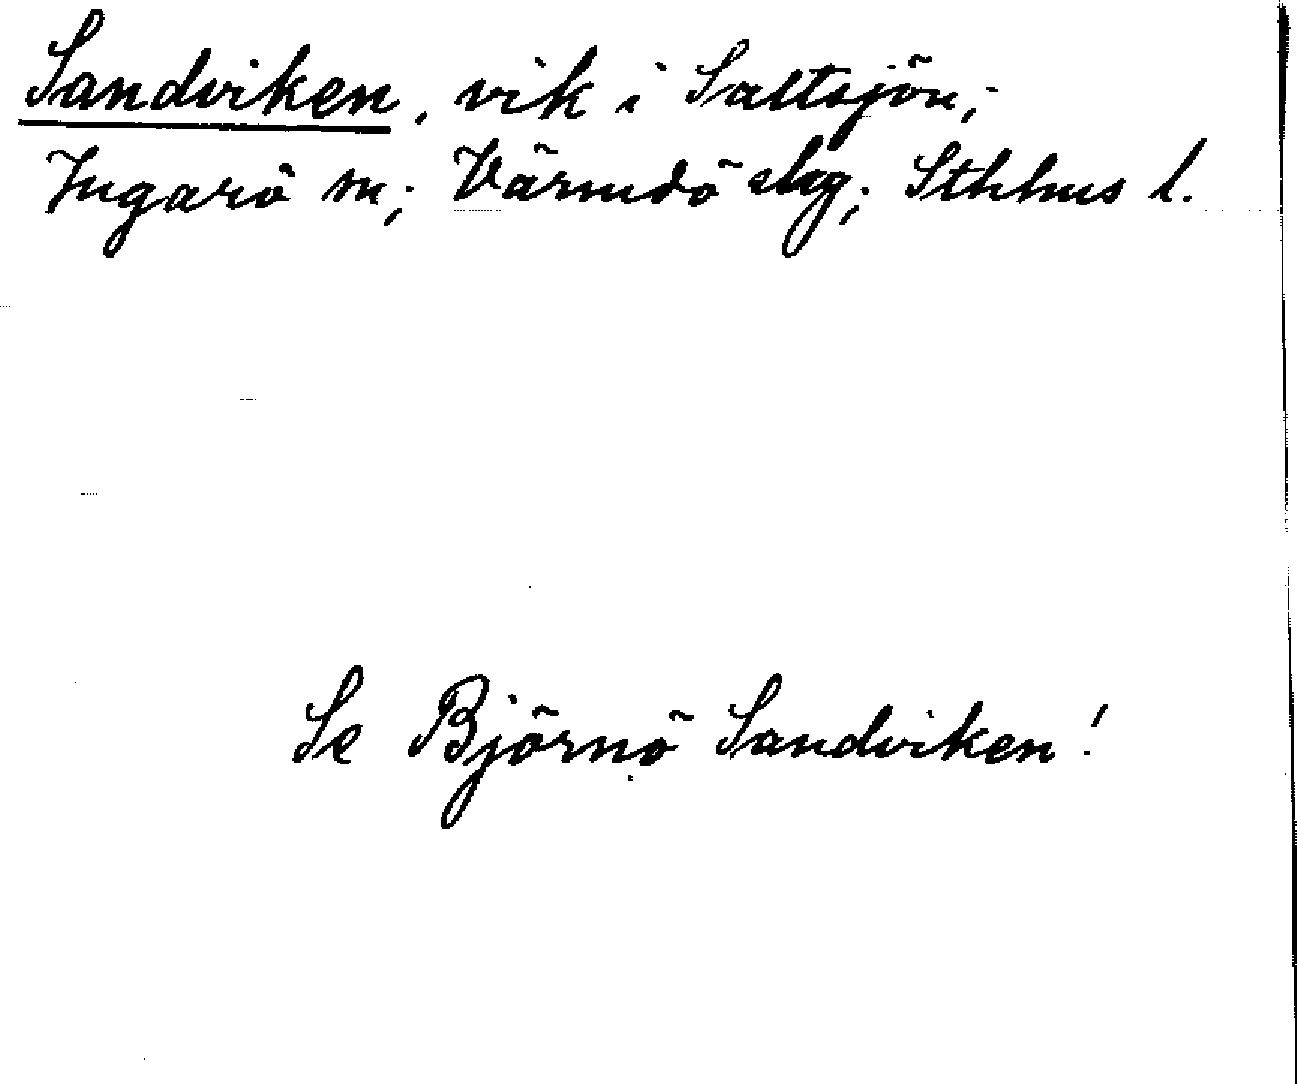 Sandviken, vik i Saltsjön;
Ingarö sn; Värmdö slg; Sthlms l.
Se Björnö Sandviken!